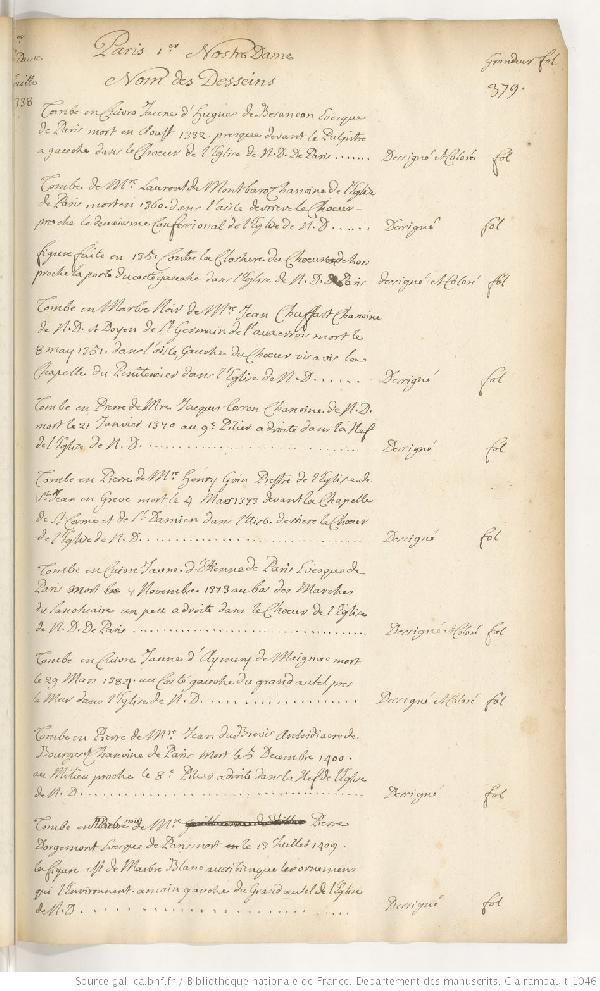 Paris 1er Nostre Dame
Nom des Desseins
Grandeur fol
379.
738
Tombe en Cuivre Jaune d'Hugues de Besancon Evesque
de Paris mort en Aoust 1332 presque devant le Pulpitre
a gauche dans le Chœur de l'Eglise de N.D. De Paris ...... Dessigné et Coloré fol
Tombe de Mre Laurent de Montbaro Chanoine de l'Eglise
de Paris mort en 1360. dans l'aisle derriere le Chœur
proche le deuxieme Confessional de l'Eglise de N.D ..... Dessigné fol
figure faite en 135. Contre la Closture du Choeur
proche la porte du costé gauche dans l'Eglise de N.D. De Paris dessigné et Coloré fol
Tombe en Marbre Noir de Mre Jean Chuffart Chanoine
de N.D. et Doyen de St Germain de l'auxerrois mort le
8 may 1351. dans l'aisle Gauche du Chœur vis a vis la
Chapelle du Penitencier dans l'Eglise de N.D ...... Dessigné fol
Tombe en Pierre de Mre Jacques Chanoine de N.D.
mort le 21 Janvier 1370 au 9e Pilier a droite dans la Nef
de l'Eglise de N.D. ........ Dessigné fol
Tombe en Pierre de Mre Henry Prestre de l'Eglise de
St Jean en Greve mort le 4 Mars 1373 devant la Chapelle
de St Come et de St Damien dans l'aisle derriere le Chœur
de l'Eglise de N.D. ........ Dessigné fol
Tombe en Cuivre Jaune d'Etienne de Paris Evesque de
Paris mort le 4 Novembre 1373 au bas des Marches
du Sanctuaire un peu a droite dans le Chœur de l'Eglise
de N.D. De Paris ........ Dessigné et Coloré fol
Tombe en Cuivre Jaune d'Aymery de Maignac mort
le 29 Mars 1384. au Costé gauche du grand autel pres
le Mur dans l'Eglise de N.D. ........ Dessigné et Coloré fol
Tombe en Pierre de Mre Jean Archidiacre de
Bourges et Chanoine de Paris Mort le 5 Decembre 1400.
au Milieu proche le 8e Pilier a droite dans la Nef de l'Eglise
de N.D. ........ Dessigné fol
Tombe en Marbre noir de Mre Pierre
Dorgemont Evesque de Paris mort le 13 Juillet 1409.
la figure est de Marbre Blanc aussi bien que les ornemens
qui l'Environnent. a main gauche du Grand autel de l'Eglise
de N.D. ........ Dessigné fol
Source gallica.bnf.fr / Bibliothèque nationale de France. Département des manuscrits. Clairambault 1046